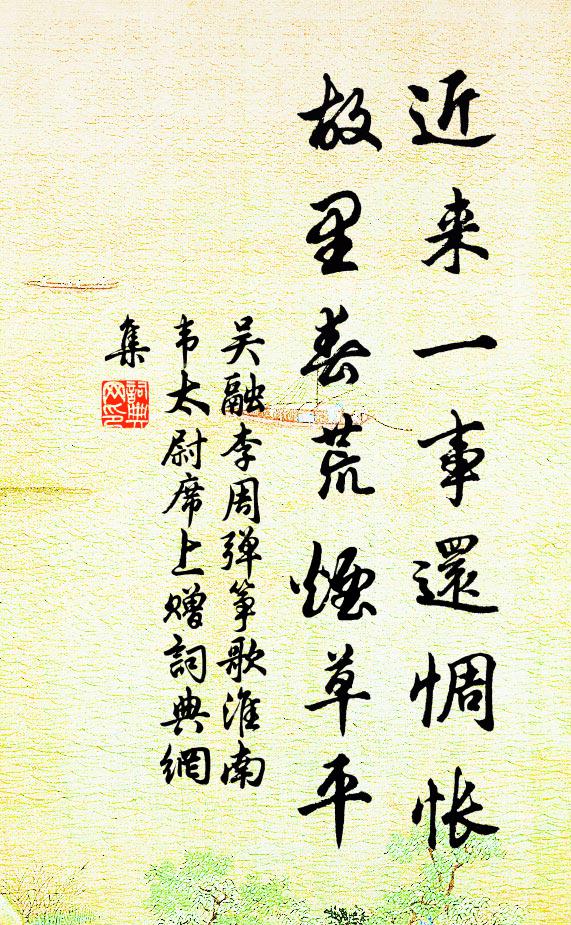 近来一事還惆怅
故里春荒煙草平
吴融李周弹筝歌淮南
韦太尉席上赠詞典網
集
詞典
网印